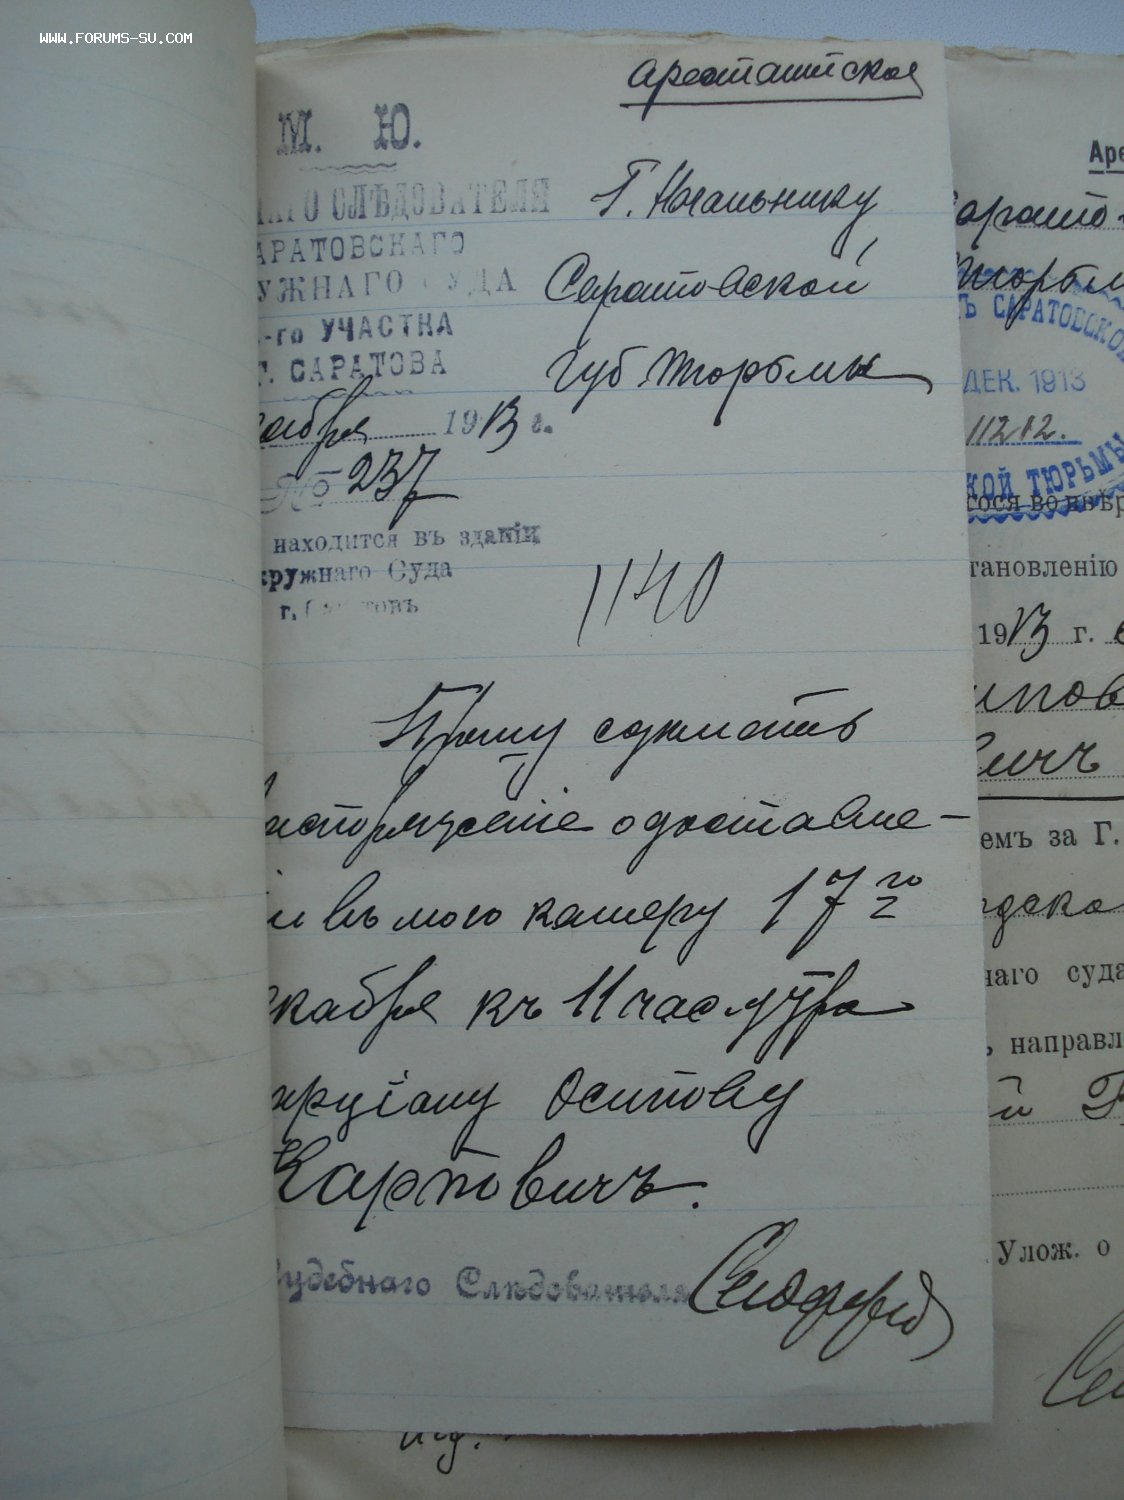 WWW.FORUMS-SU.COM
Арестантская
М. Ю.
НАГО СЛѢДОВАТЕЛЯ
АРАТОВСКАГО
УЖНАГО СУДА
-го УЧАСТКА
Г. САРАТОВА
кабря 1913 г.
№ 237
находится въ зданіи
кружнаго Суда
г. Саратовъ
Г. Начальнику
Саратовской
Губ. тюрьмы
1140
Прошу сдѣлать
распоряженіе о доставле-
іи въ мою камеру 17го
екабря къ 11 час. утра
арціану Осипову
Карповичъ.
Судебнаго Слѣдователя
Аре
ТЪ САРАТОВСКОЙ
ДЕК. 1913
11202.
КОЙ ТЮРЬМЫ
гося во ввѣр
тановленію
1913 г.
ипов
вичъ
емъ за Г.
одско
наго суда
, направл
й Г
Улож. о